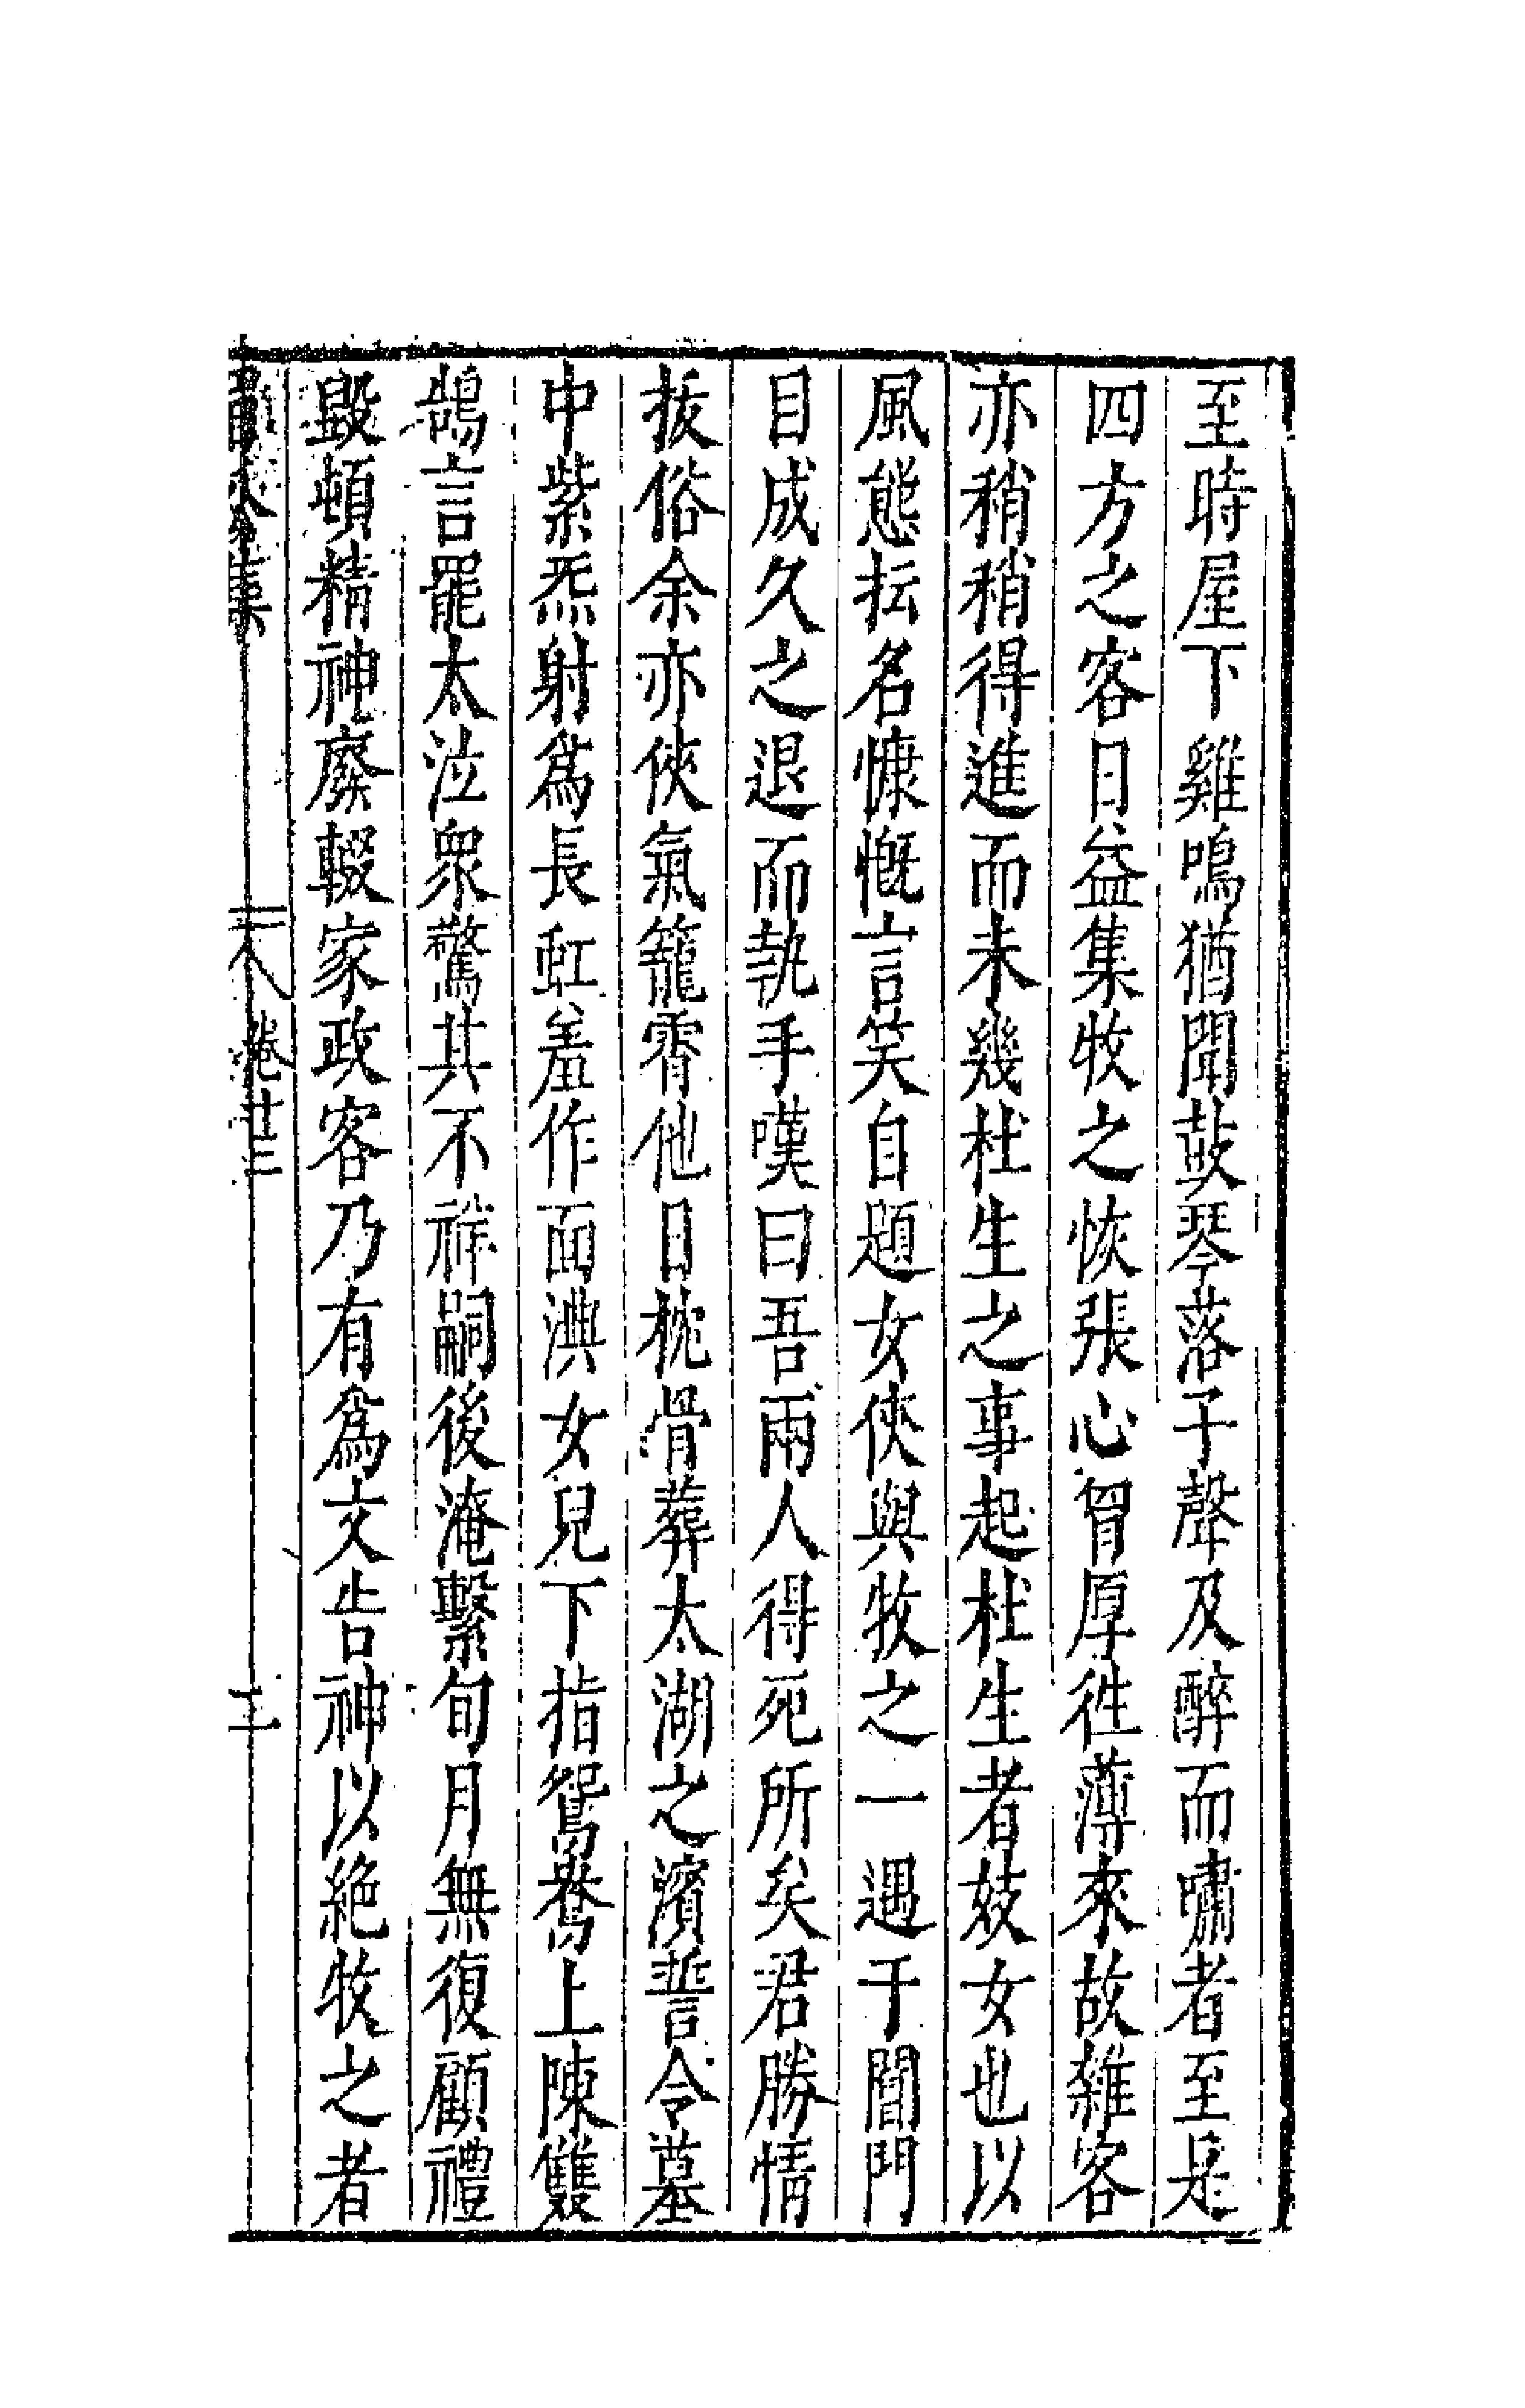 至時屋下雞鳴猶聞鼓琴落子聲及醉而嘯者至是
四方之客日益集牧之恢張心胷厚徃薄來故雜客
亦稍稍得進而未幾杜生之事起杜生者妓女也以
風態抎名慷慨言笑自題女俠與牧之一遇于閶門
目成久之退而執手嘆曰吾兩人得死所矣君勝情
拔俗余亦俠氣籠霄他日枕骨葬太湖之濱誓令墓
中紫炁射爲長虹羞作面淟女兒下指鴛鴦上陳雙
鵠言罷太泣衆驚其不祥嗣後淹繫旬月無復顧禮
毀頓精神廢輟家政客乃有爲文告神以絶牧之者
集
卷廿三